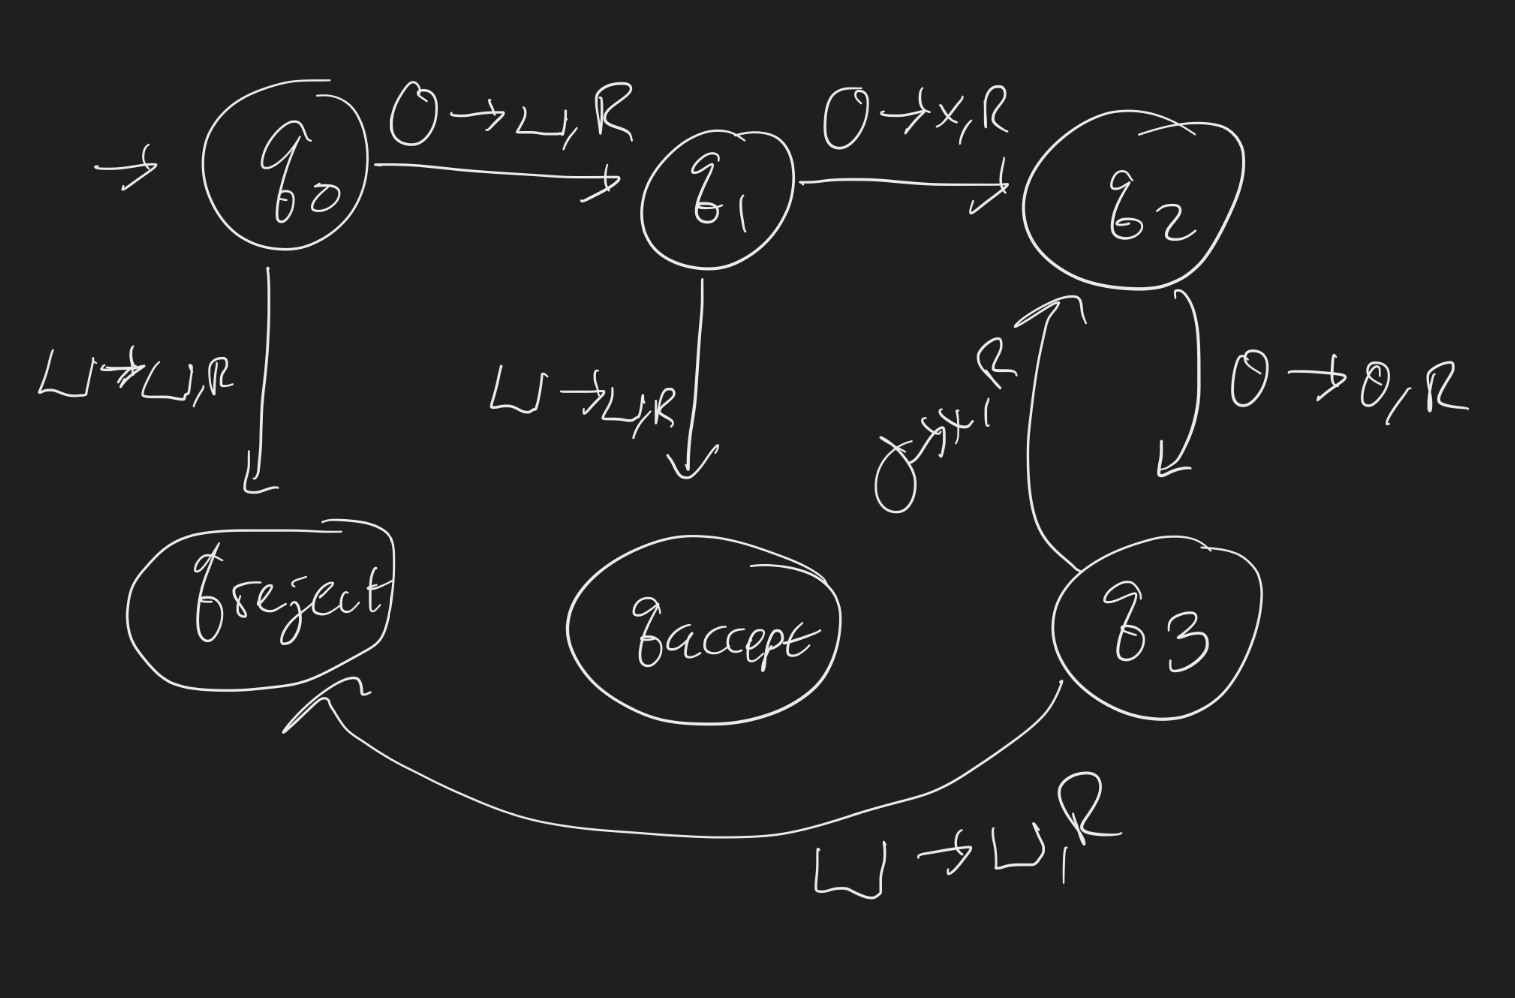 → q0 0→⊔,R q1 0→x,R q2
⊔→⊔,R ⊔→⊔,R 0→x,R 0→0,R
qreject qaccept q3
⊔→⊔,R